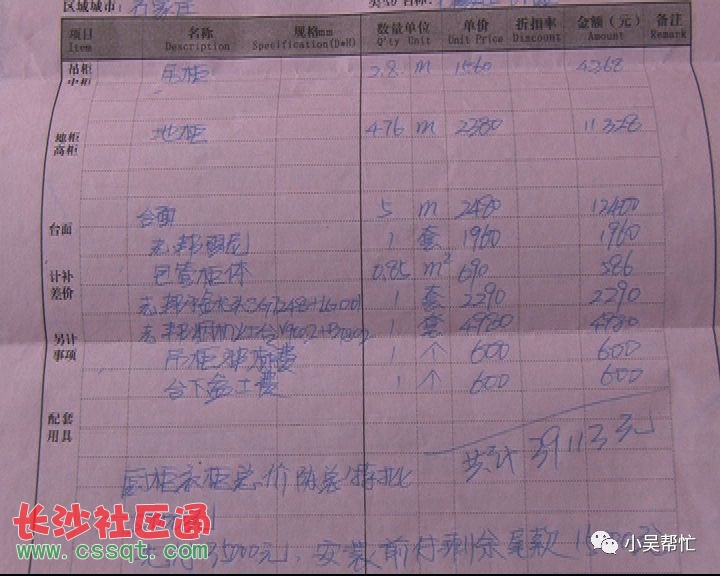 区域城市：石家庄
项目 名称 规格mm 数量单位 单价 折扣率 金额（元） 备注
Item Description Specification(D*H) Q'ty Unit Unit Price Discount Amount Remark
吊柜 吊柜 2.8 m 1560 4368
中柜
地柜 地柜 4.76 m 2380 11328
高柜
台面 台面 5 m 2480 12400
志邦阻尼 1 套 1960 1960
计补 包管柜体 0.85 m² 690 586
差价
志邦 1 套 2290 2290
另计 志邦 1 套 4980 4980
事项 吊柜 费 1 个 600 600
台下盆工费 1 个 600 600
配套
用具
共计 39113元
厨柜衣柜总价
35000元、安装前付剩余尾款
长沙社区通
www.cssqt.com
小吴帮忙